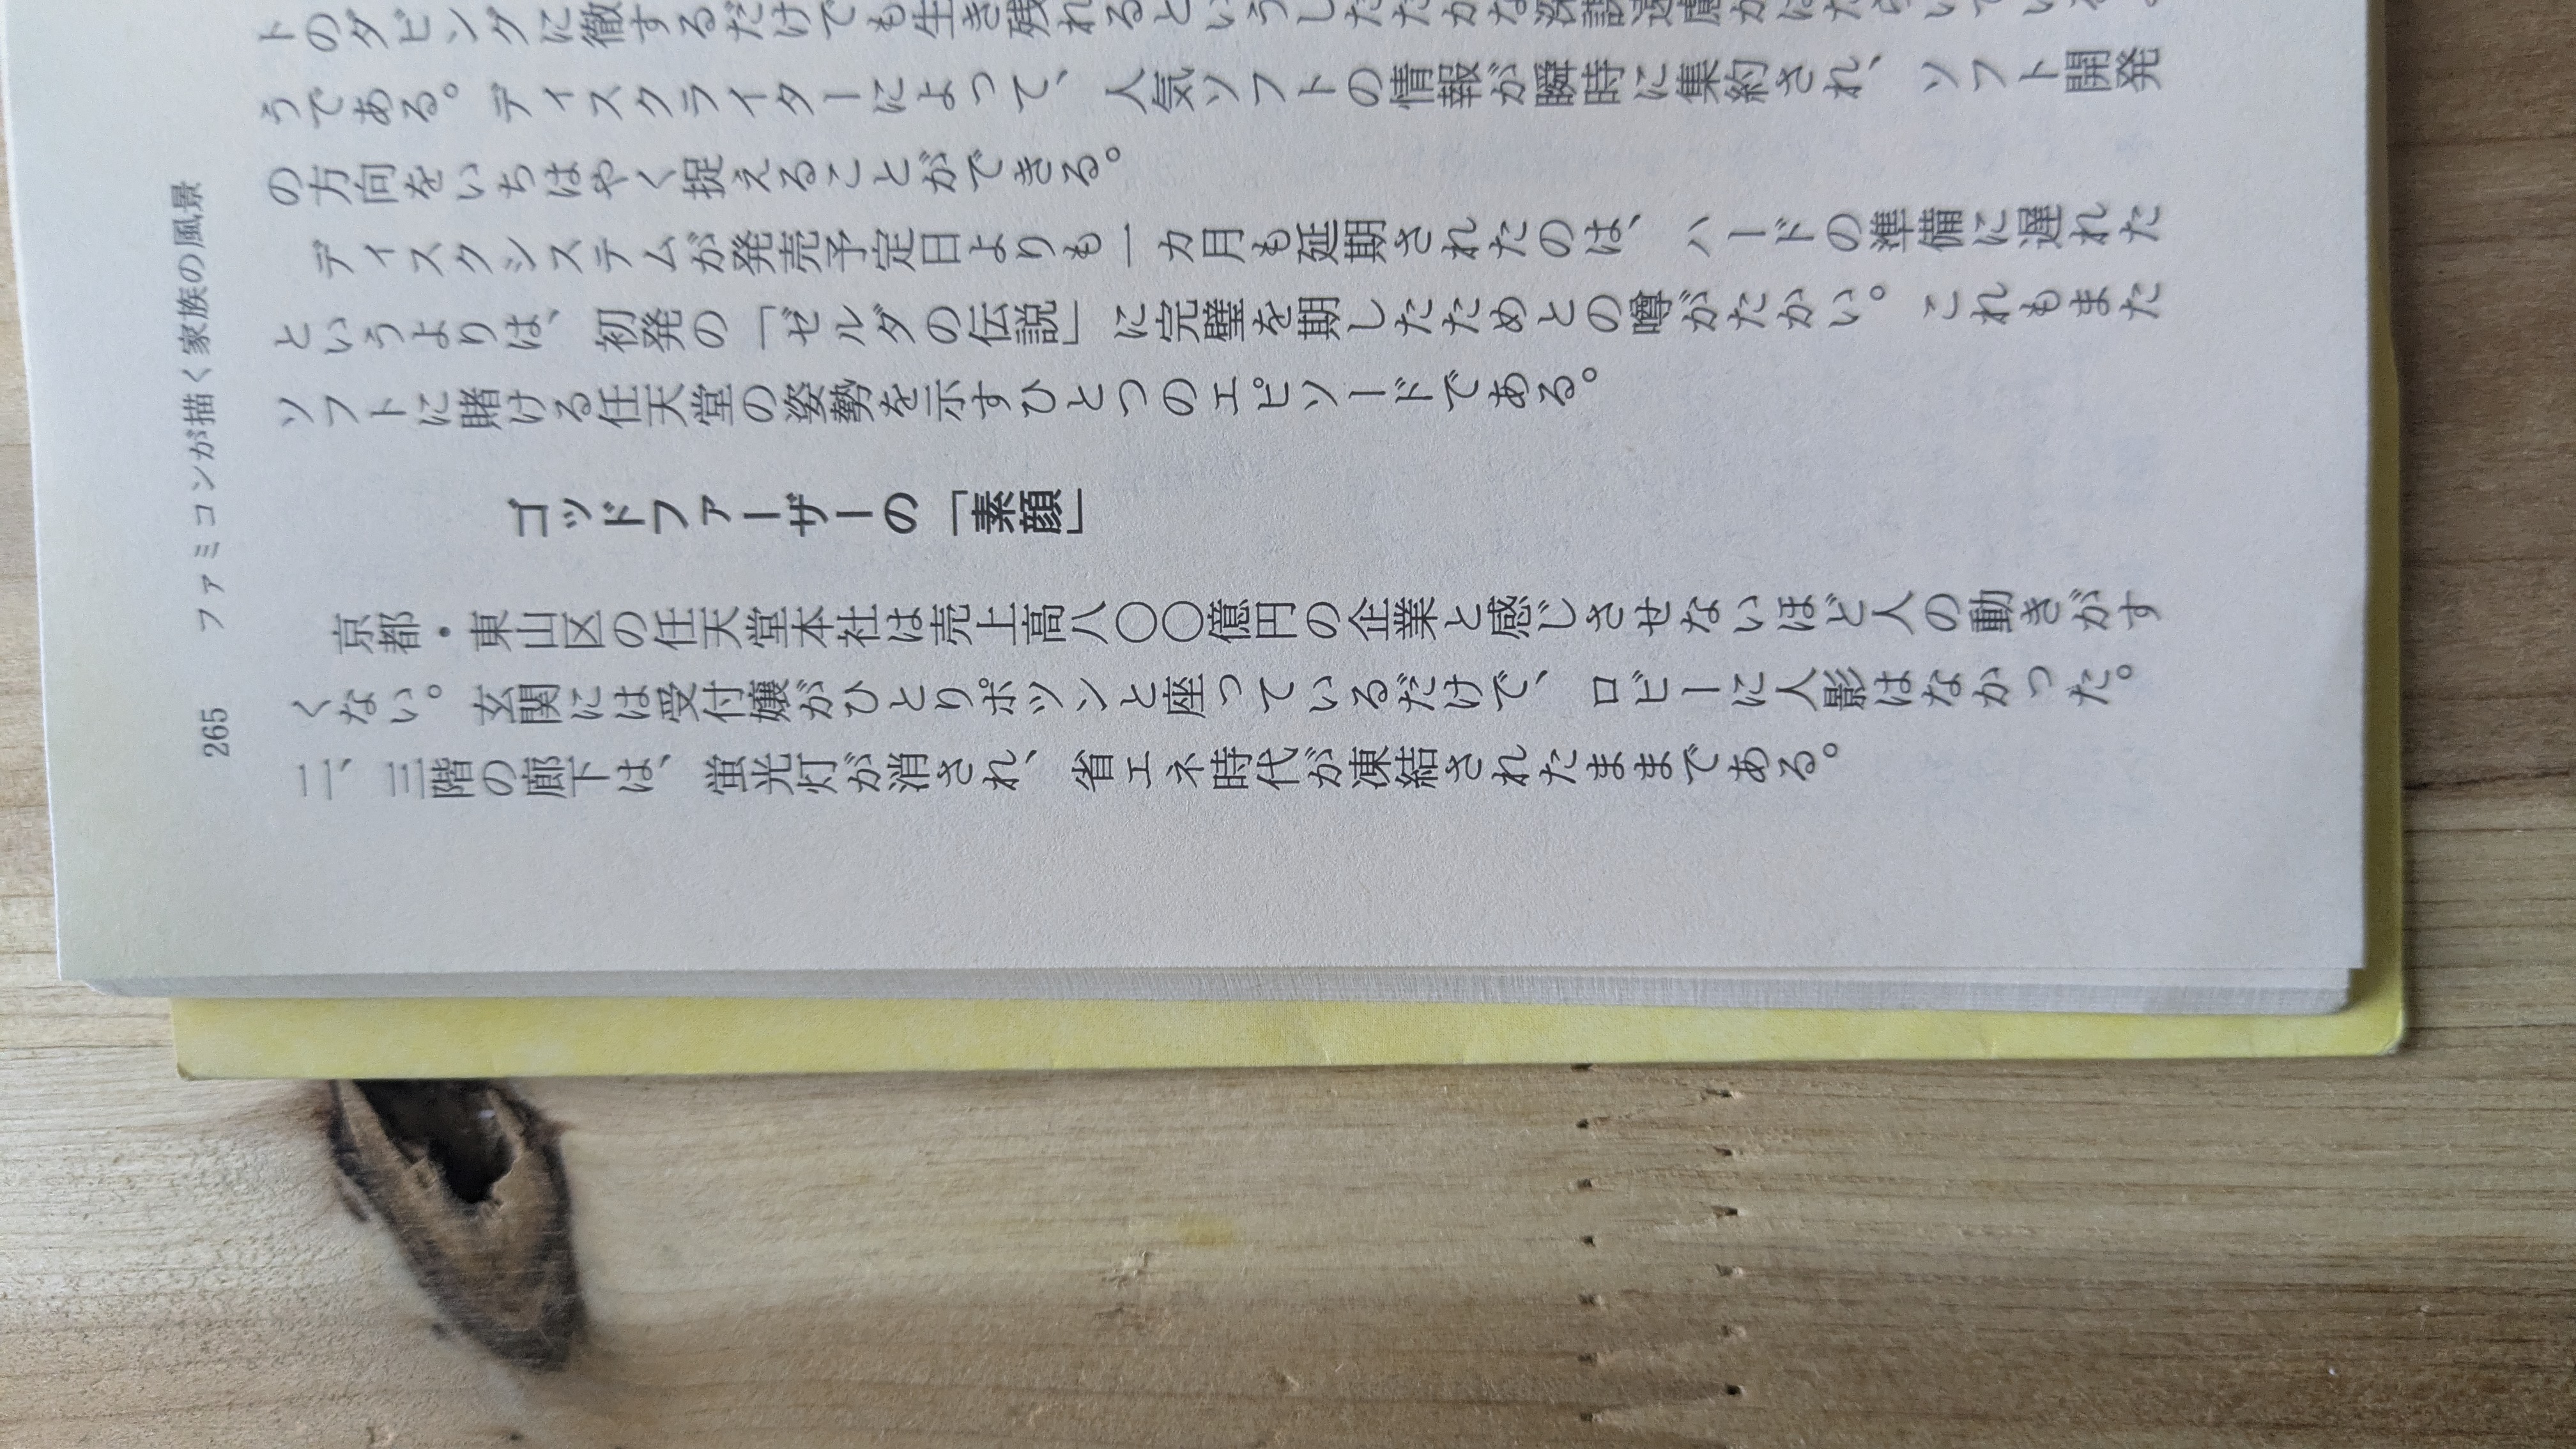 トのダビングに徹するだけでも生き残れるというしたたかな深謀遠慮がはたらいている
うである。ディスクライターによって、人気ソフトの情報が瞬時に集約され、ソフト開発
の方向をいちはやく捉えることができる。
ディスクシステムが発売予定日よりも一カ月も延期されたのは、ハードの準備に遅れた
というよりは、初発の「ゼルダの伝説」に完璧を期したためとの噂がたかい。これもまた
ソフトに賭ける任天堂の姿勢を示すひとつのエピソードである。
ゴッドファーザーの「素顔」
京都・東山区の任天堂本社は売上高八〇〇億円の企業と感じさせないほど人の動きがす
くない。玄関には受付嬢がひとりポツンと座っているだけで、ロビーに人影はなかった。
二、三階の廊下は、蛍光灯が消され、省エネ時代が凍結されたままである。
265 ファミコンが描く家族の風景